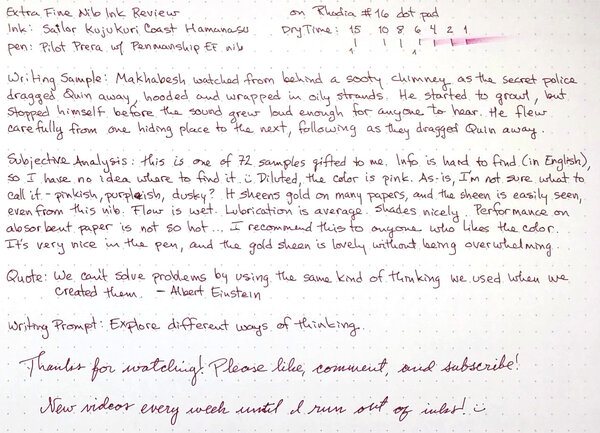 Extra Fine Nib Ink Review on Rhodia #16 dot pad
Ink: Sailor Kujukuri Coast Hamanasu Dry Time: 15 10 8 6 4 2 1
pen: Pilot Prera w/ Penmanship EF nib
Writing Sample: Makhabesh watched from behind a sooty chimney as the secret police
dragged Quin away, hooded and wrapped in oily strands. He started to growl, but
stopped himself before the sound grew loud enough for anyone to hear. He flew
carefully from one hiding place to the next, following as they dragged Quin away.
Subjective Analysis: this is one of 72 samples gifted to me. Info is hard to find (in English),
so I have no idea where to find it. Diluted, the color is pink. As-is, I'm not sure what to
call it - pinkish, purpleish, dusky? It sheens gold on many papers, and the sheen is easily seen,
even from this nib. Flow is wet. Lubrication is average. Shades nicely. Performance on
absorbent paper is not so hot... I recommend this to anyone who likes the color.
It's very nice in the pen, and the gold sheen is lovely without being overwhelming.
Quote: We can't solve problems by using the same kind of thinking we used when we
created them. - Albert Einstein
Writing Prompt: Explore different ways of thinking.
Thanks for watching! Please like, comment, and subscribe!
New videos every week until I run out of inks!